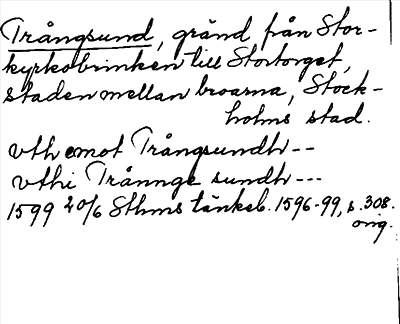 Trångsund, gränd från Stor-
kyrkobrinken till Stortorget,
staden mellan broarna, Stock-
holms stad.
vth emot Trångsundh--
vthi Trånnge sundh---
1599 20/6 Sthms tänkeb. 1596-99, s. 308.
orig.